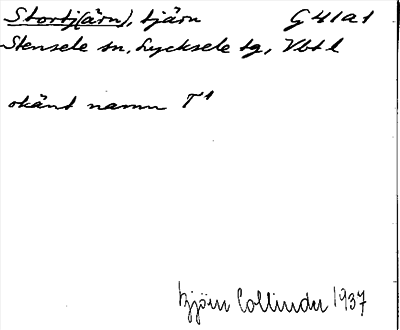 Stortj(ärn), tjärn G 41 a 1
Stensele sn, Lycksele tg, Vbt l
okänt namn T¹
Björn Collinder 1937